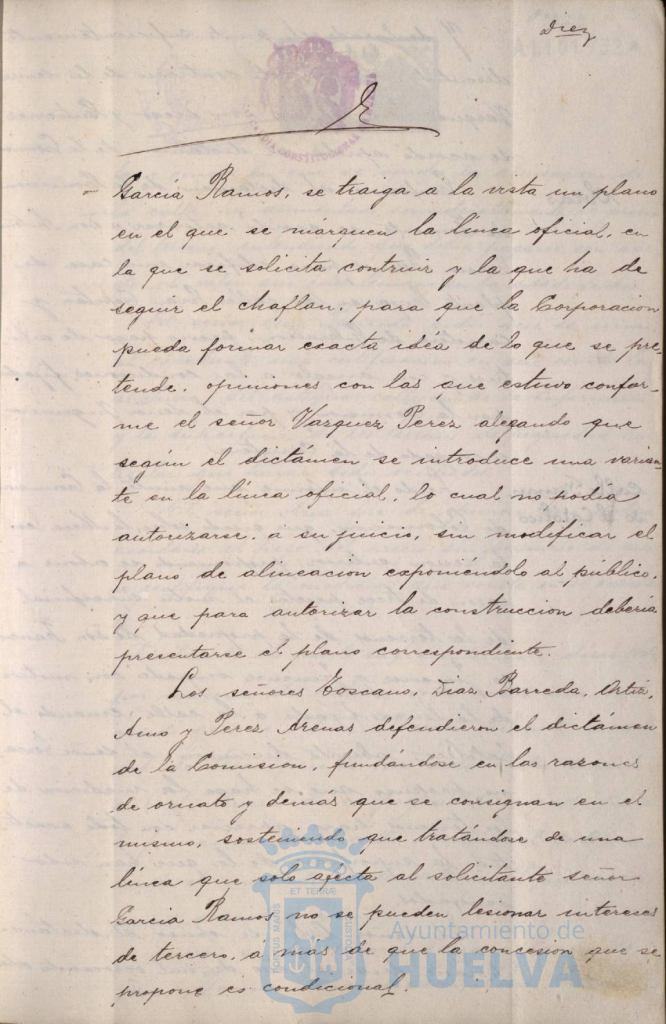 Diez
García Ramos, se traiga a la vista un plano
en el que se márquen la línea oficial, en
la que se solicita contruir y la que ha de
seguir el chaflan, para que la Corporacion
pueda formar exacta idéa de lo que se pre-
tende, opiniones con las que estuvo confor-
me el señor Vazquez Perez alegando que
según el dictámen se introduce una varian-
te en la línea oficial, lo cual no podia
autorizarse, a su juicio, sin modificar el
plano de alineacion exponiéndolo al público,
y que para autorizar la construccion debería
presentarse el plano correspondiente.
Los señores Toscano, Diaz Barreda, Ortiz,
Amo y Perez Arenas defendieron el dictámen
de la Comision, fundándose en las razones
de ornato y demás que se consignan en el
mismo, sosteniendo que tratándose de una
línea que solo afecta al solicitante señor
García Ramos no se pueden lesionar intereses
de tercero, a más de que la concesion que se
propone es condicional.
ET TERRÆ
PORTUS MARIS
CUSTODIA
Ayuntamiento de
HUELVA